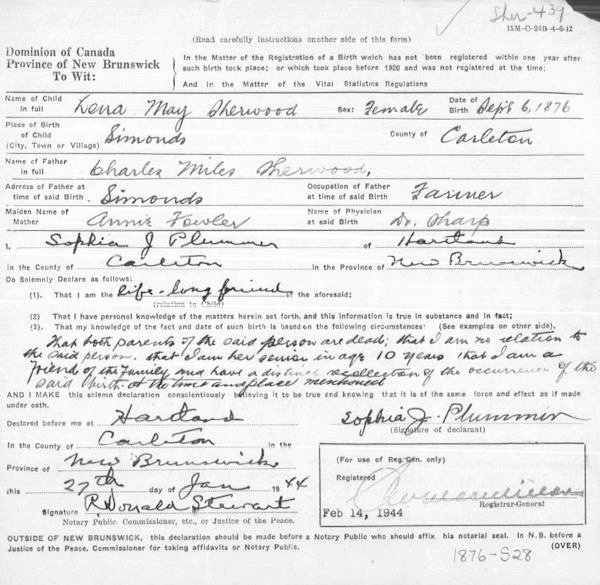 Sher-439
(Read carefully instructions another side of this form)
15M-C-26B-4-6-12
Dominion of Canada
Province of New Brunswick
To Wit:
In the Matter of the Registration of a Birth which has not been registered within one year after
such birth took place; or which took place before 1920 and was not registered at the time;
And in the Matter of the Vital Statistics Regulations
Name of Child in full Lena May Sherwood Sex: Female Date of Birth Sept 6, 1876
Place of Birth of Child (City, Town or Village) Simonds County of Carleton
Name of Father in full Charles Miles Sherwood,
Address of Father at time of said Birth Simonds Occupation of Father at time of said Birth Farmer
Maiden Name of Mother Annie Fowler Name of Physician at said Birth Dr. Sharp
I, Sophia J Plummer of Hartland
in the County of Carleton in the Province of New Brunswick
Do Solemnly Declare as follows:
(1). That I am the life-long friend of the aforesaid;
(relation to Child)
(2) That I have personal knowledge of the matters herein set forth, and this information is true in substance and in fact;
(3) That my knowledge of the fact and date of such birth is based on the following circumstances: (See examples on other side).
That both parents of the said person are dead; that I am no relation to
the said person. that I am her senior in age 10 years that I am a
friend of the family and have a distinct recollection of the occurrence of the
said birth at the time and place mentioned
AND I MAKE this solemn declaration conscientiously believing it to be true and knowing that it is of the same force and effect as if made
under oath.
Declared before me at Hartland
Sophia J. Plummer
(Signature of declarant)
in the County of Carleton in the
Province of New Brunswick
this 27th day of Jan 1944
Signature R. Donald Stewart
Notary Public. Commissioner, etc., or Justice of the Peace.
(For use of Reg. Gen. only)
Registered
Registrar-General
Feb 14, 1944
OUTSIDE OF NEW BRUNSWICK, this declaration should be made before a Notary Public who should affix his notarial seal. In N.B. before a
Justice of the Peace, Commissioner for taking affidavits or Notary Public. (OVER)
1876-S28